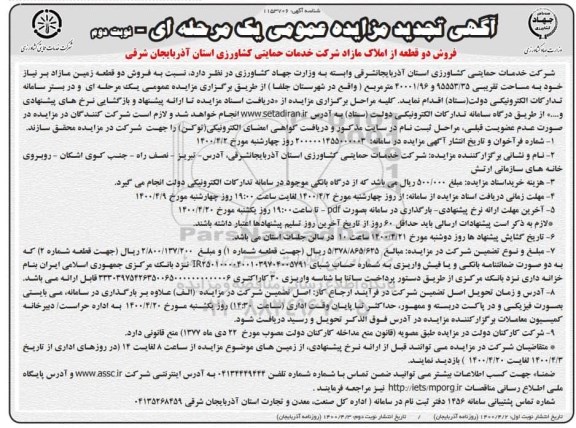 شناسه آگهی: ۱۱۵۳۷۰۶
آگهی تجدید مزایده عمومی یک مرحله ای - نوبت دوم
فروش دو قطعه از املاک مازاد شرکت خدمات حمایتی کشاورزی استان آذربایجان شرقی
شرکت خدمات حمایتی کشاورزی استان آذربایجانشرقی وابسته به وزارت جهاد کشاورزی در نظر دارد، نسبت به فروش دو قطعه زمین مازاد بر نیاز
خود به مساحت تقریبی ۹۵۵۵۳/۳۵ و ۴۰۰۰۱/۹۶ مترمربع ( واقع در شهرستان جلفا ) از طریق برگزاری مزایده عمومی یک مرحله ای و در بستر سامانه
تدارکات الکترونیکی دولت(ستاد) اقدام نماید. کلیه مراحل برگزاری مزایده از دریافت اسناد مزایده تا ارائه پیشنهاد و بازگشایی نرخ های پیشنهادی
و....» از طریق درگاه سامانه تدارکات الکترونیکی دولت(ستاد) به آدرس www.setadiran.ir انجام خواهد شد و لازم است شرکت کنندگان در مزایده در
صورت عدم عضویت قبلی، مراحل ثبت نام در سایت مذکور و دریافت گواهی امضای الکترونیکی(توکن) را جهت شرکت در مزایده محقق سازند.
۱- شماره فرآخوان و تاریخ انتشار آگهی مزایده در سامانه: ۲۰۰۰۰۰۱۴۵۵۰۰۰۰۰۳ روز چهارشنبه مورخ ۱۴۰۰/۴/۲
۲- نام و نشانی برگزارکننده مزایده: شرکت خدمات حمایتی کشاورزی استان آذربایجانشرقی، آدرس- تبریز - نصف راه - جنب کوی اشکان - روبروی
خانه های سازمانی ارتش
۳- هزینه خریداسناد مزایده: مبلغ ۵۰۰/۰۰۰ ریال می باشد که از درگاه بانکی موجود در سامانه تدارکات الکترونیکی دولت انجام می گیرد.
۴- مهلت زمانی دریافت اسناد مزایده از سامانه: از روز چهارشنبه مورخ ۱۴۰۰/۴/۲ لغایت ساعت ۱۹:۰۰ روز چهارشنبه مورخ ۱۴۰۰/۴/۹
۵- آخرین مهلت ارائه نرخ پیشنهادی- بارگذاری در سامانه بصورت pdf - تا ساعت ۱۹:۰۰ روز یکشنبه مورخ ۱۴۰۰/۴/۲۰
*لازم به ذکر است پیشنهادات ارسالی باید حداقل ۶۰ روز از تاریخ آخرین روز تسلیم پیشنهادها اعتبار داشته باشد.
۶- تاریخ گشایش پیشنهاد ها روز دوشنبه مورخ ۱۴۰۰/۴/۲۱ ساعت در سالن جلسات استان می باشد.
۷- مبلغ و نوع تضمین شرکت در مزایده: مبالغ ۵/۳۷۸/۸۶۵/۶۲۵ ریال (جهت قطعه شماره ۱) و مبلغ ۲/۸۰۰/۱۳۷/۲۰۰ ریال(جهت قطعه شماره ۲) که
به دو صورت ضمانتنامه بانکی و یا فیش واریزی به شماره حساب شبای نزد بانک مرکزی جمهوری اسلامی ایران بنام
خزانه داری نزد بانک مرکزی از طریق دستور پرداخت ساتنا با شناسه واریزی ۳۰ کاراکتری قابل ارائه می باشد.
۸- آدرس و زمان تحویل اصل تضمین شرکت در فرآیند ارجاع کار: اصل تضمین شرکت در مزایده (الف) علاوه بر بارگذاری در سامانه، می بایستی
بصورت فیزیکی و در پاکت دربسته و ممهور، حداکثر تا پایان وقت اداری (ساعت ۱۴:۳۰) روز یکشنبه مورخ ۱۴۰۰/۴/۲۰ به اداره حراست/دبیرخانه
کمیسیون معاملات برگزار کننده مزایده در آدرس فوق الذکر تحویل و رسید دریافت شود.
۹- شرکت کارکنان دولت در مزایده طبق مصوبه (قانون منع مداخله کارکنان دولت مصوب مورخ ۲۲ دی ماه ۱۳۷۷) منع قانونی دارد.
* متقاضیان شرکت در مزایده می توانند قبل از ارائه نرخ پیشنهادی، از زمین های موضوع مزایده از ساعت ۸ لغایت ۱۴ (در روزهای اداری از تاریخ
۱۴۰۰/۴/۳ لغایت ۱۴۰۰/۴/۲۰ ) بازدید نمایند.
ضمناً، جهت کسب اطلاعات بیشتر می توانید ضمن تماس با شماره تلفن ۰۴۱۳۴۴۴۹۴۴۴ به آدرس اینترنتی شرکت www.assc.ir و آدرس پایگاه
ملی اطلاع رسانی مناقصات http://iets/mporg.ir نیز مراجعه فرمایند.
شماره تماس پشتیبانی سامانه ۱۴۵۶ دفتر ثبت نام در سامانه ( اداره کل صنعت، معدن و تجارت استان آذربایجان شرقی ۰۴۱۳۵۲۶۸۴۵۹
تاریخ انتشار نوبت اول: ۱۴۰۰/۴/۲ (روزنامه آذربایجان) / تاریخ انتشار نوبت دوم: ۱۴۰۰/۴/۳ (روزنامه آذربایجان)